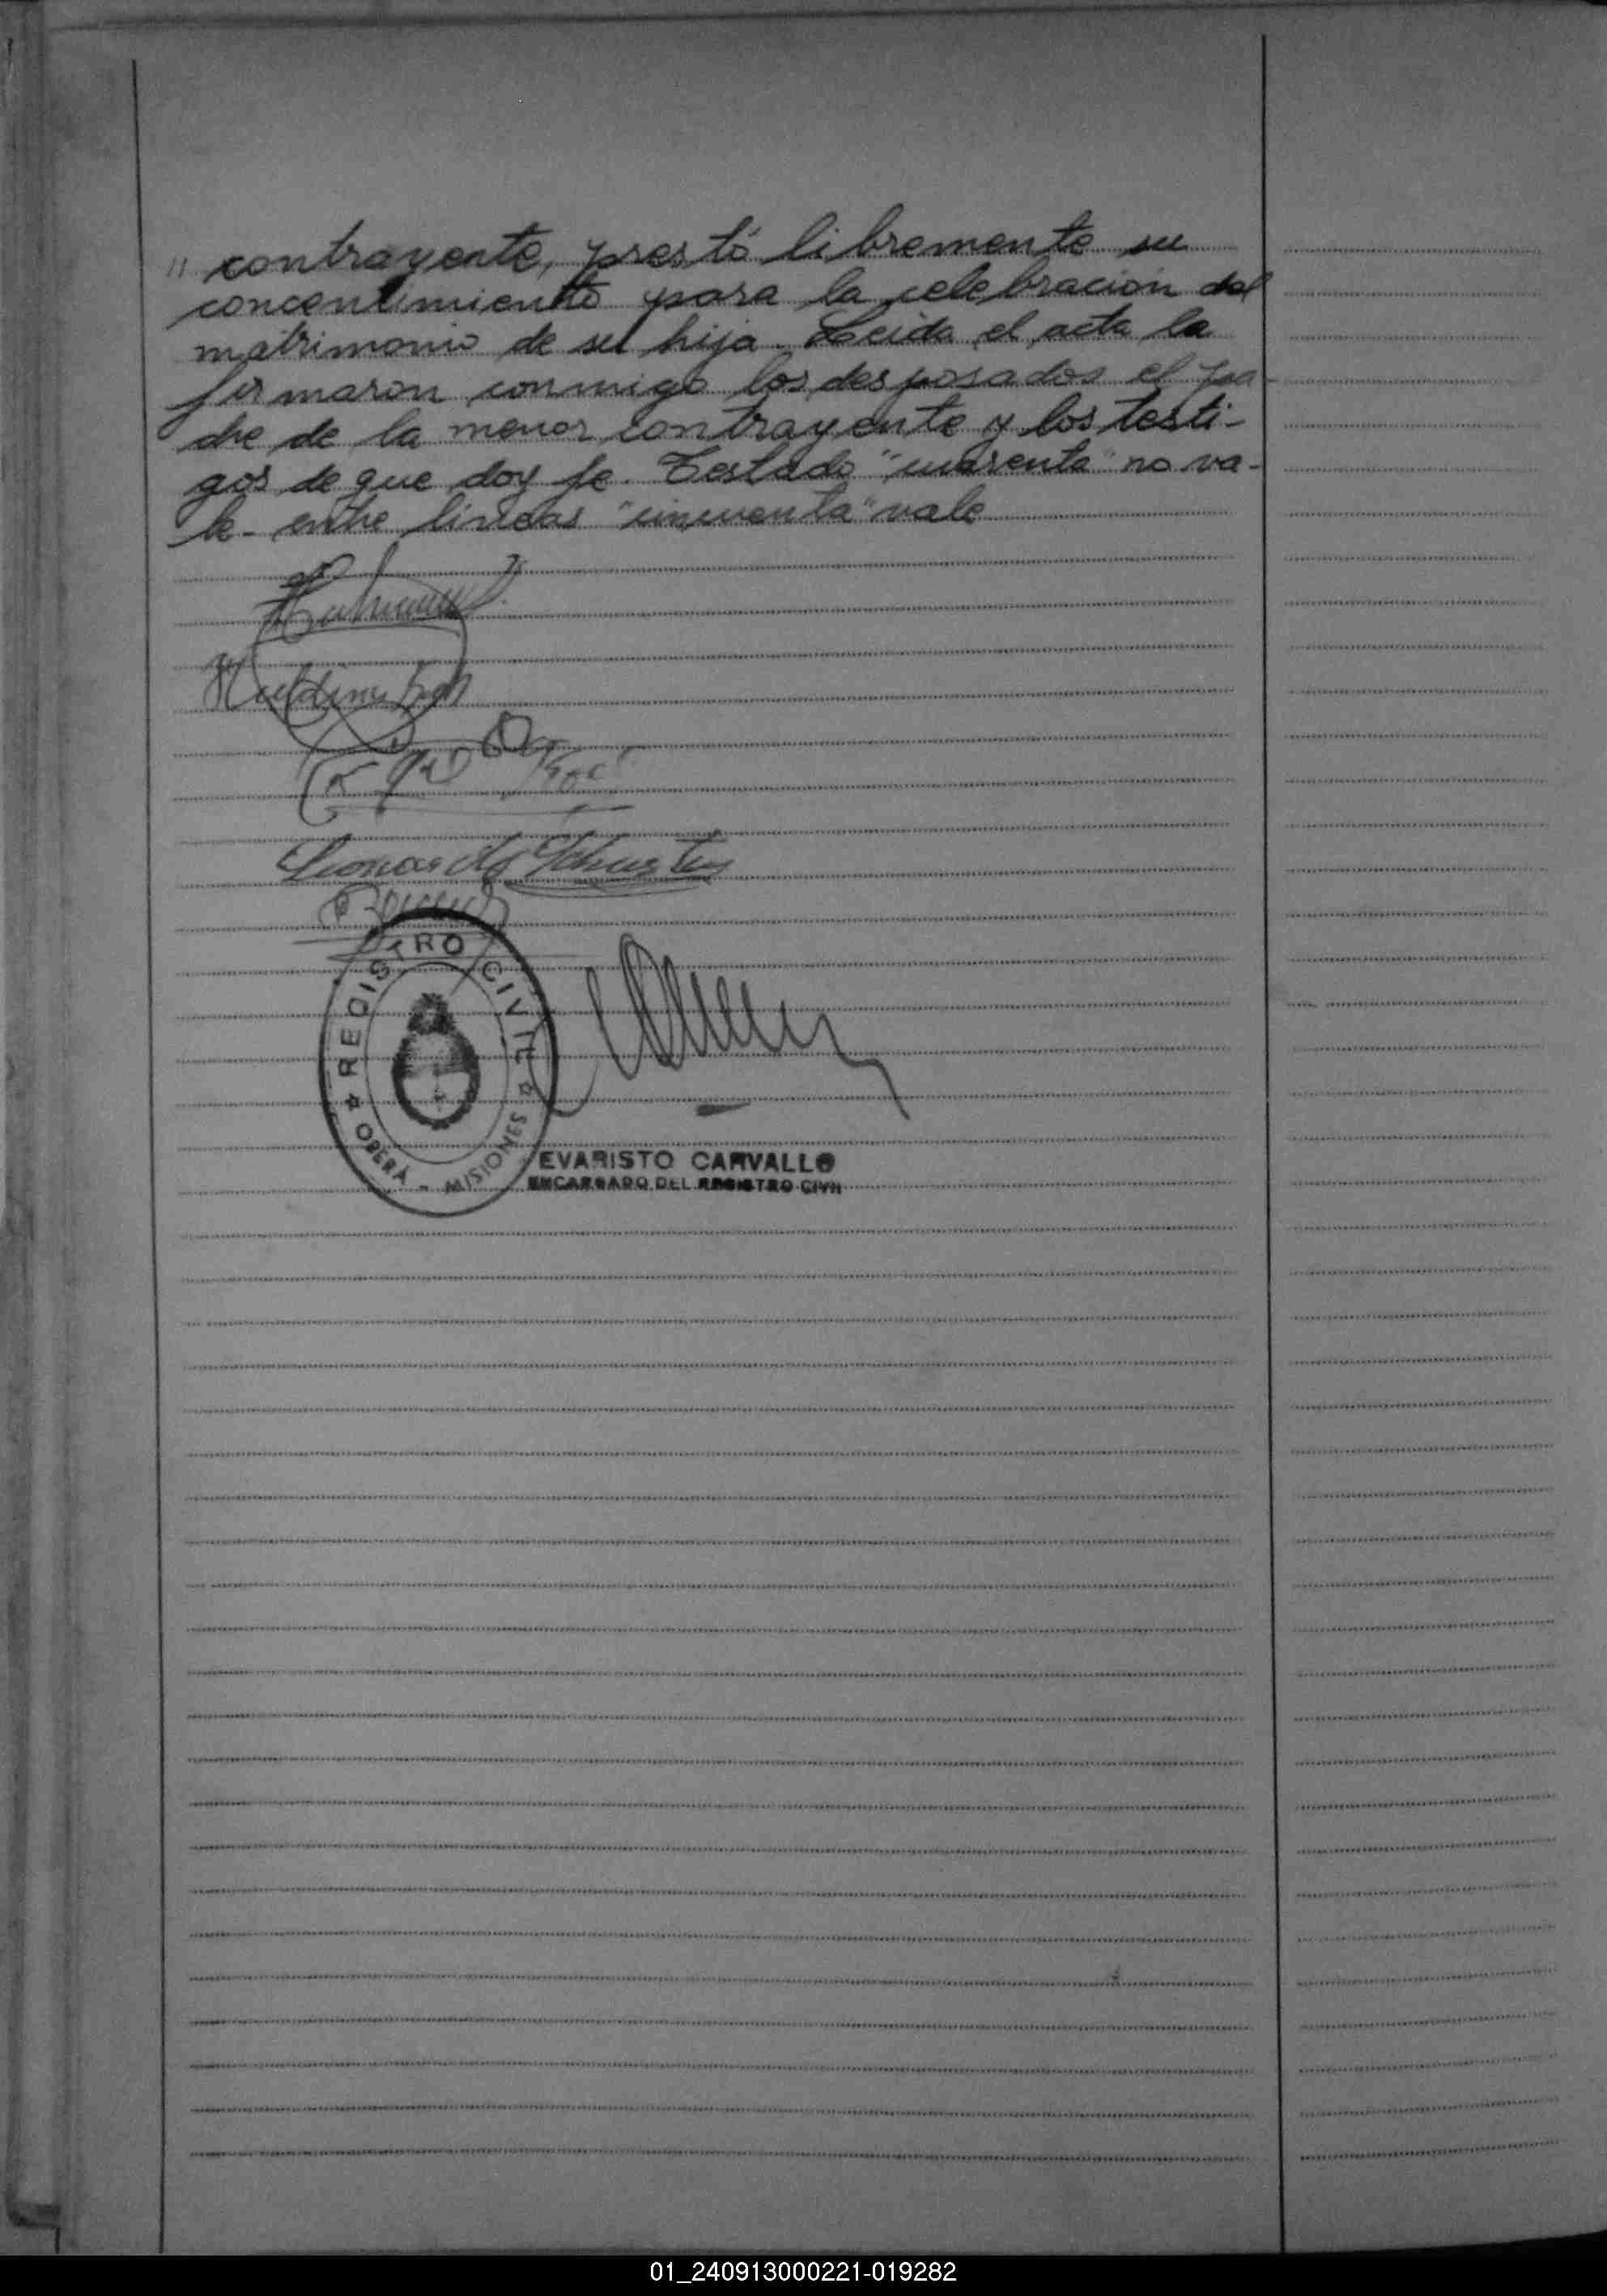 " contrayente, prestó libremente su
concentimiento para la celebración del
matrimonio de su hija. Leida el acta la
firmaron conmigo los desposados el pa-
dre de la menor contrayente y los testi-
gos de que doy fe. Testado "cuarenta" no va-
le - entre lineas "cincuenta" vale
Leonardo
REGISTRO CIVIL
OBERÁ - MISIONES
EVARISTO CARVALLO
ENCARGADO DEL REGISTRO CIVIL
01_240913000221-019282